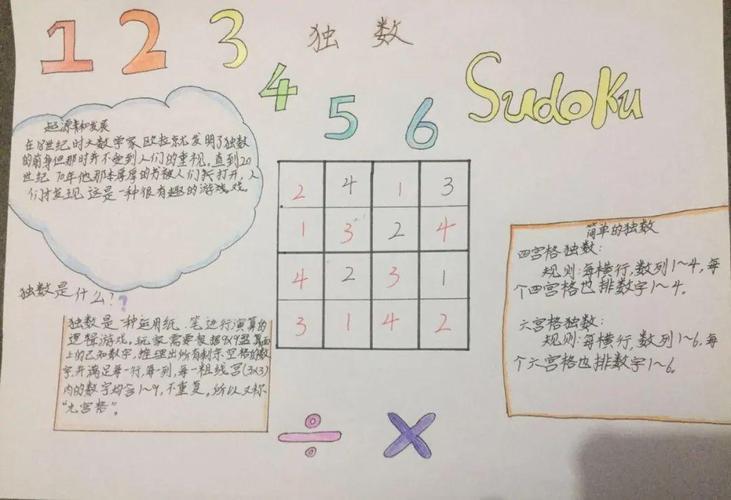 1 2 3 独 数
4 5 6 Sudoku
起源和发展
在18世纪时大数学家欧拉就发明了独数
的前身但那时并不受到人们的重视,直到20
世纪70年他那本厚厚的书被人们打开,人
们才发现这是一种很有趣的游戏戏.
2 4 1 3
1 3 2 4
4 2 3 1
3 1 4 2
独数是什么?
独数是一种运用纸、笔进行演算的
逻辑游戏。玩家需要根据9X9盘面
上的已知数字,推理出所有剩余空格的数
字,并满足每一行,每一列,每一粗线宫(3X3)
内的数字均含1~9,不重复。所以又称
"九宫格"。
简单的独数
四宫格独数:
规则:每横行,数列1~4,每
个四宫格也排数字1~4。
六宫格独数:
规则:每横行,数列1~6,每
个六宫格也排数字1~6。
÷ ×